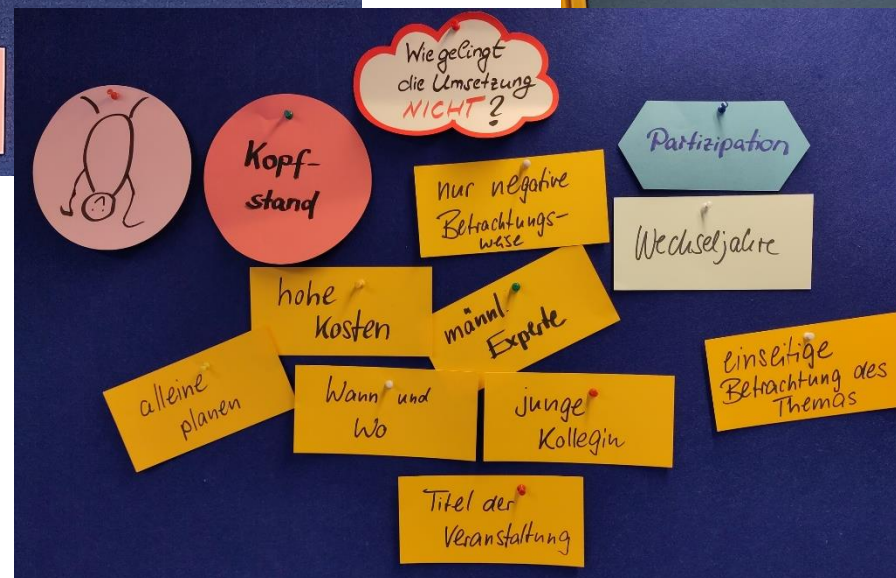 Wie gelingt
die Umsetzung
NICHT?
Kopf-
stand
Partizipation
nur negative
Betrachtungs-
weise
Wechseljahre
hohe
Kosten
männl.
Experte
einseitige
Betrachtung des
Themas
alleine
planen
Wann und
Wo
junge
Kollegin
Titel der
Veranstaltung